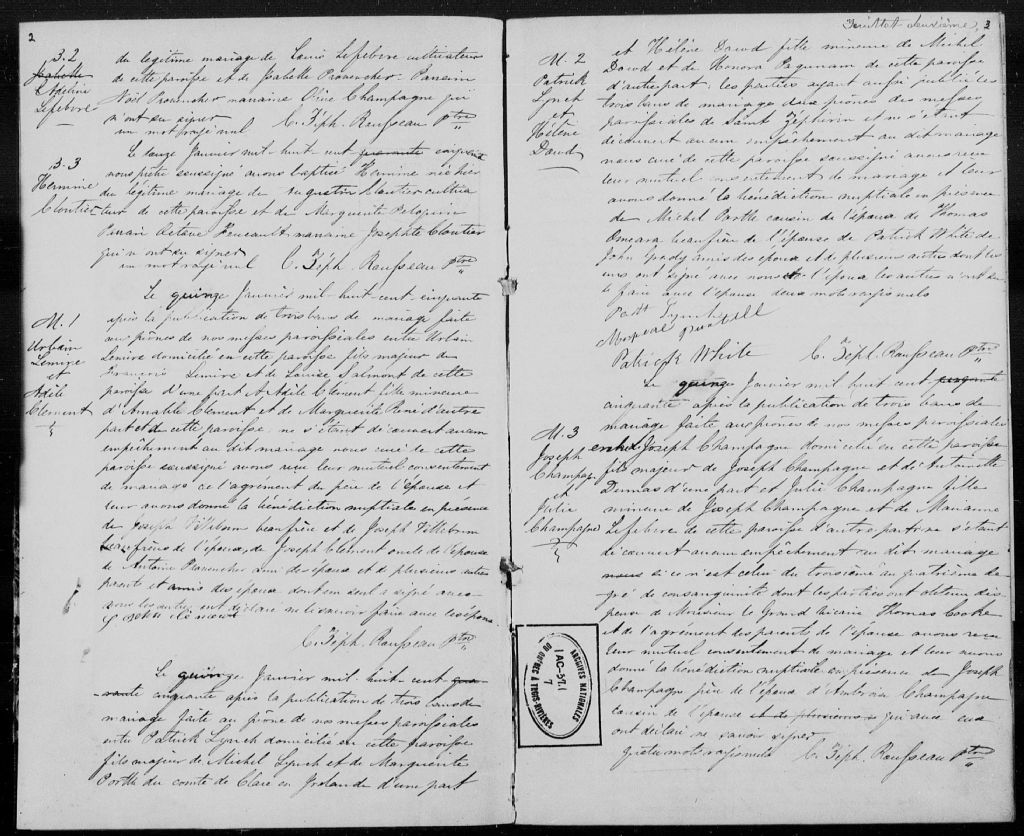 2
B.2
Isabelle
Adeline
Lefebvre
du legitime mariage de Louis Lefebvre cultivateur
de cette paroisse et de Isabelle Provencher. Parrain
Noël Provencher marraine Olive Champagne qui
n'ont su signer
un mot rayé nul C. Zéph. Rousseau Ptre
B-3
Hermine
Cloutier
Le Janvier mil-huit-cent quarante cinquante
nous prêtre soussigné avons baptisé Hermine née hier
du légitime mariage de Augustin Cloutier cultiva
teur de cette paroisse et de Marguerite Peloquin
Parrain Octave marraine Josephte Cloutier
qui n'ont su signer
un mot rayé nul C. Zéph. Rousseau Ptre
M. 1
Urbain
Lemire
et
Adèle
Clement
Le quinze Janvier mil-huit-cent-cinquante
après la publication de trois bans de mariage faite
au prônes de nos messes paroissiales entre Urbain
Lemire domicilié en cette paroisse fils majeur de
François Lemire et de Louise Salmont de cette
paroisse d'une part & Adèle Clement fille mineure
d'Amable Clement et de Marguerite René d'autre
part et de cette paroisse ne s'étant découvert aucun
empêchement au dit mariage nous curé de cette
paroisse soussigné avons reçu leur mutuel consentement
de mariage et l'agrément du père de l'épouse et
leur avons donné la bénédiction nuptiale en présence
de Joseph Villebrun beaufrère et de Joseph Villebrun
beaufrères de l'époux, de Joseph Clement oncle de l'épouse
de Antoine Provencher ami des époux et de plusieurs autres
parents et amis des époux dont un seul a signé avec
nous les autres ont déclaré ne le savoir faire avec les époux
C. Zéph. Rousseau Ptre
Le quinze Janvier mil-huit-cent qua-
rante cinquante après la publication de trois bans de
mariage faite au prône de nos messes paroissiales
entre Patrick Lynch domicilié en cette paroisse
fils majeur de Michel Lynch et de Marguerite
Portle du comté de Clare en Irelande d'une part
Feuillet deuxième, 2
M. 2
Patrick
Lynch
et
Hélène
Dawd
et Hélène Dawd fille mineure de Michel
Dawd et de Honora de cette paroisse
d'autre part: les parties ayant aussi publié les
trois bans de mariage aux prônes des messes
paroissiales de Saint Zéphirin et ne s'étant
découvert aucun empêchement au dit mariage
nous curé de cette paroisse soussigné avons reçu
leur mutuel consentement de mariage et leur
avons donné la bénédiction nuptiale en présence
de Michel Portle cousin de l'époux de Thomas
Omeara beaufrère de l'épouse de Patrick White de
John amis des époux et de plusieurs autres dont les
uns ont signé avec nous et l'époux les autres n'ont su
le faire avec l'épouse deux mots rayés nuls
Patt Lynch
Patrick White C. Zéph. Rousseau Ptre
M. 3
Joseph
Champagne
et
Julie
Champagne
Le quinze Janvier mil huit cent
cinquante après la publication de trois bans de
mariage faite aux prônes de nos messes paroissiales
entre Joseph Champagne domicilié en cette paroisse
fils majeur de Joseph Champagne et de Antoinette
Dumas d'une part et Julie Champagne fille
mineure de Joseph Champagne et de Marianne
Lefebvre de cette paroisse d'autre part ne s'étant
découvert aucun empêchement au dit mariage
nous si ce n'est celui du troisième au quatrième de-
gré de consanguinité dont les parties ont obtenu dis
pense de Monsieur le Grand Vicaire Thomas Cooke
et de l'agrément des parents de l'épouse avons reçu
leur mutuel consentement de mariage et leur avons
donné la bénédiction nuptiale en présence de Joseph
Champagne père de l'époux d'Ambroise Champagne
cousin de l'épouse et de plusieurs qui avec eux
ont déclaré ne savoir signer
quatre mots rayés nuls C. Zéph. Rousseau Ptre
ARCHIVES NATIONALES
1 AC-571
7
DU QUÉBEC À TROIS-RIVIÈRES